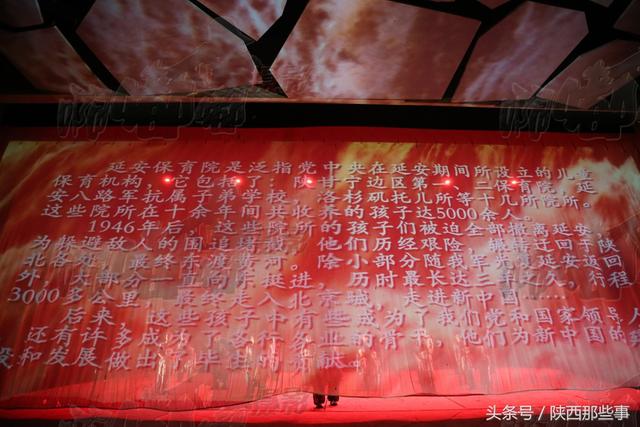 延安保育院是泛指党中央在延安期间所设立的儿童
保育机构，它包括了：陕甘宁边区第一、二保育院，延
安八路军抗属子弟学校，洛杉矶托儿所等十几所院所。
这些院所在十余年间共收养的孩子达5000余人。
1946年后，这些院所的孩子们被迫全部撤离延安，
为躲避敌人的围追堵截，他们历经艰险，辗转迁回于陕
北各处，最终东渡黄河。除小部分随我军光复延安返
外，大部分一直向挺进，历时最长达三年之久，行程
3000多公里，最终走进北京城，走进新中国……
后来，这些孩子中有些成为了我们党和国家领导人
还有许多成为的骨干，他们为新中国的建
设和发展做出了毕生的贡献。
头条号 / 陕西那些事